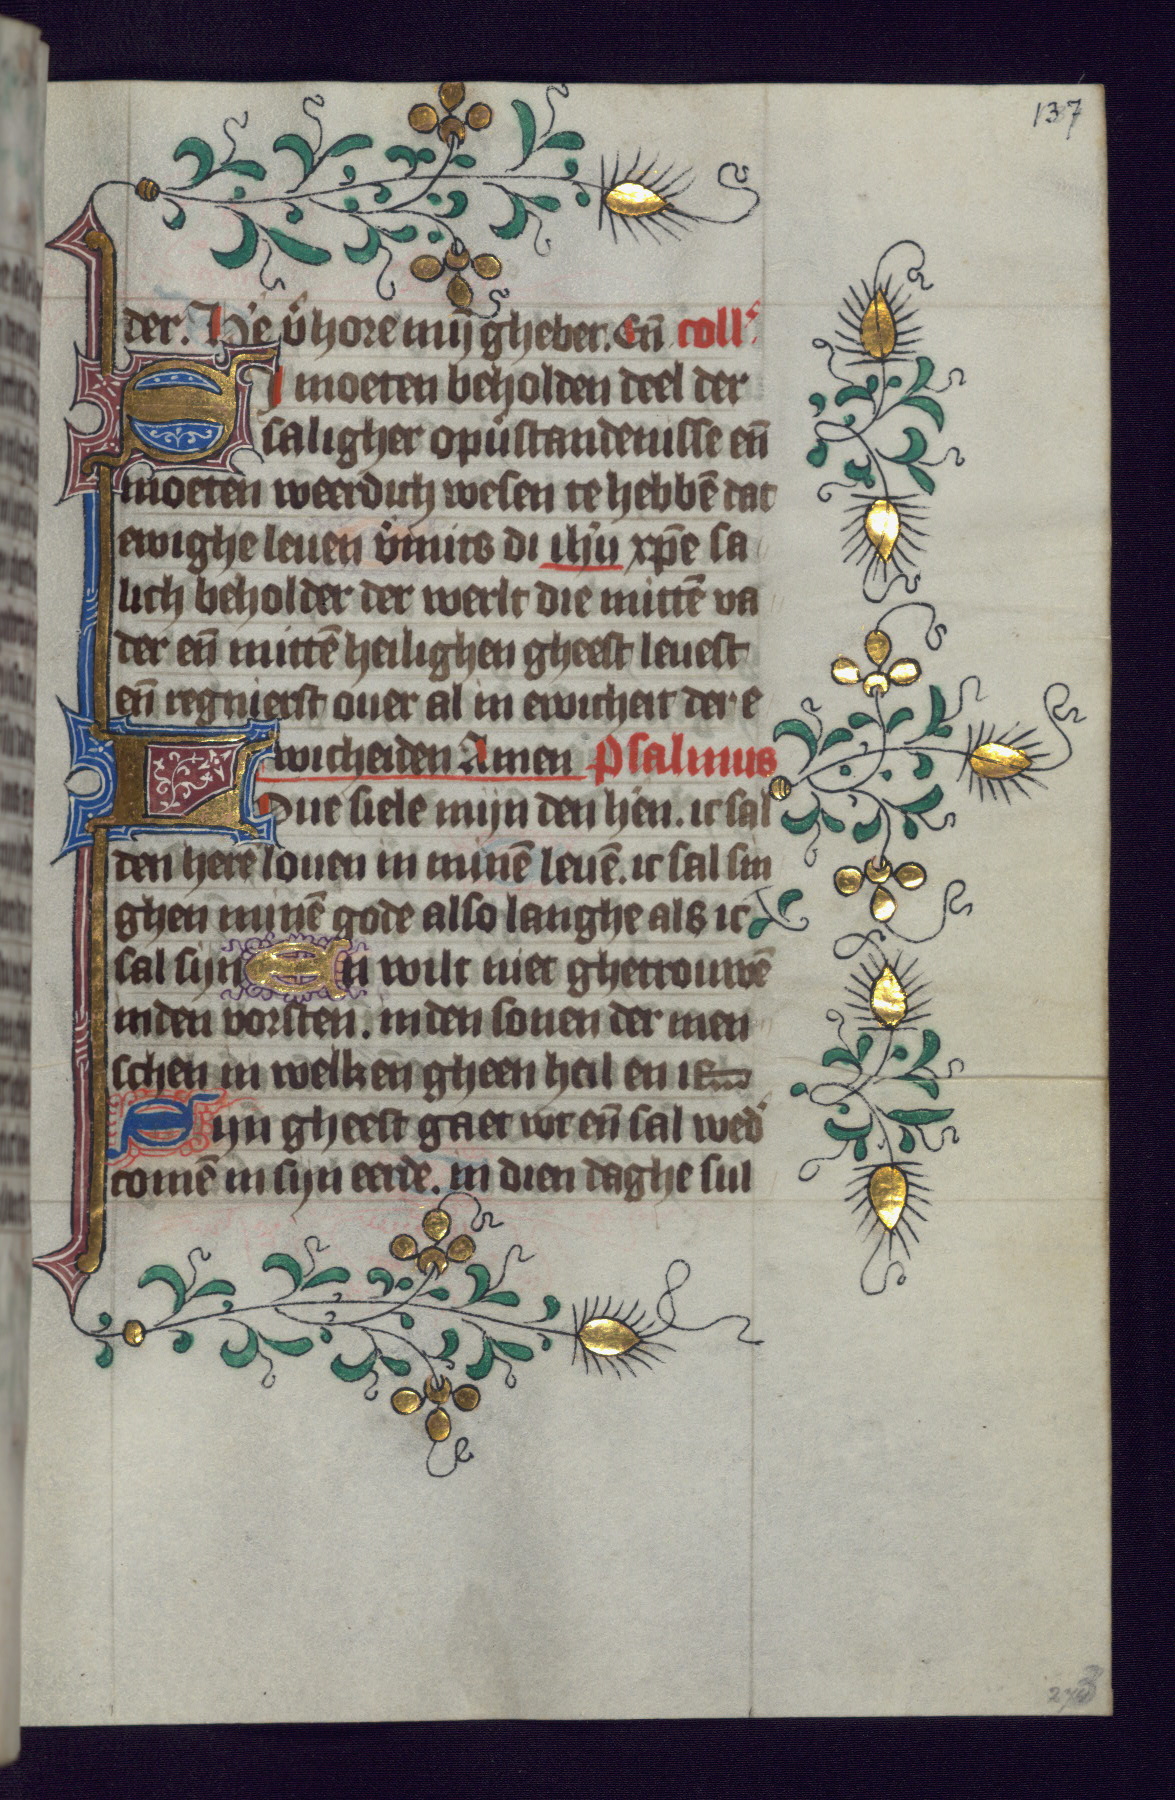 137
der. He v̄hore mij̄ ghebet. En̄ coll'.
Si moeten beholden deel der
saligher opv̄standenisse en̄
moeten weerdich wesen te hebbē dat
ewighe leuen v̄mits di ihū xp̄e sa
lich beholder der werlt die mittē va
der en̄ mittē heilighen gheest leuest
en̄ regnierst ouer al in ewicheit der e
wicheiden Amen Psalmus
Loue siele mijn den hēn. ic sal
den here louen in minē leuē. ic sal sin
ghen minē gode also langhe als ic
sal sijn En wilt niet ghetrouwē
inden vorsten. inden sonen der men
schen in welken gheen heil en is
Sijn gheest gaet wt en̄ sal wed'
comē in sijn eerde. in dien daghe sul